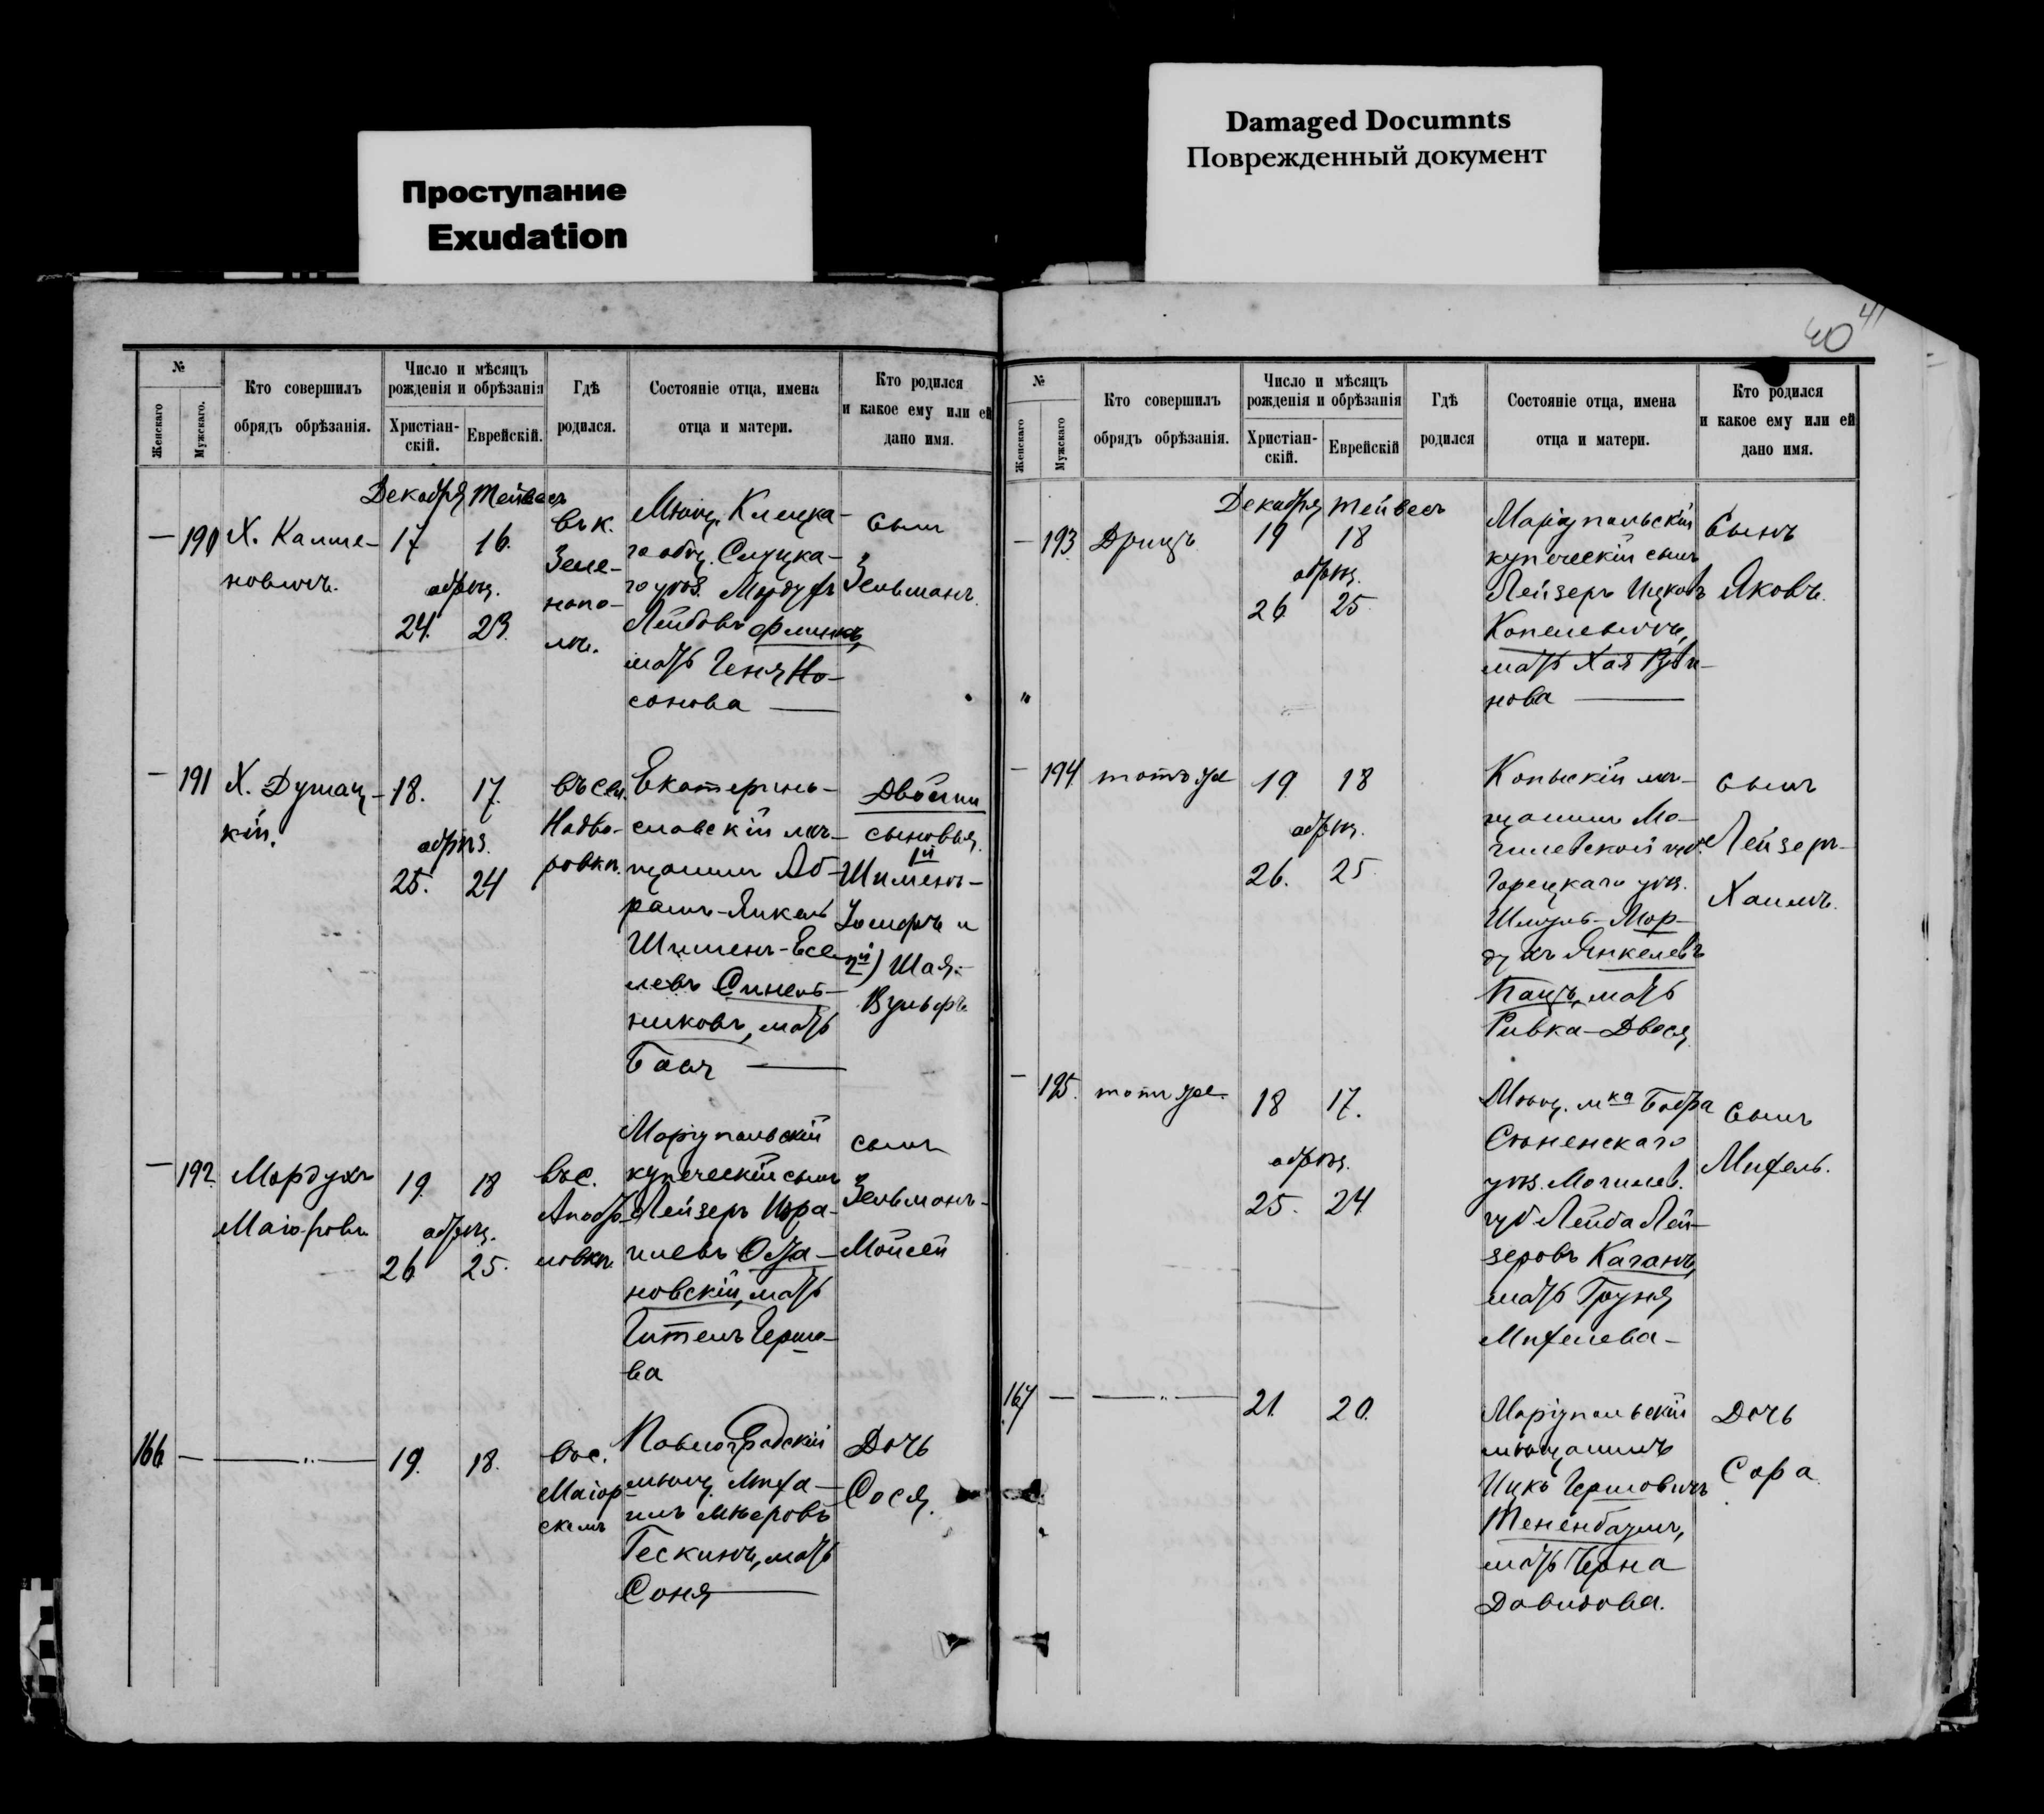 Damaged Documnts
Поврежденный документ
Проступание
Exudation
40
41
№
Женскаго
Мужскаго.
Кто совершилъ
обрядъ обрѣзанія.
Число и мѣсяцъ
рожденія и обрѣзанія
Христіан-
скій.
Еврейскій.
Гдѣ
родился.
Состояніе отца, имена
отца и матери.
Кто родился
и какое ему или ей
дано имя.
Декабря Тейвесъ
— 190
Х. Калме-
новичъ.
17 16.
обрѣз.
24. 23.
Въ к.
Зеле-
нопо-
лѣ.
Мѣщ. Клецка-
го общ. Слуцка-
го уѣз. Мордухъ
Лейбовъ Флинкъ,
мать Геня Но-
сонова —
Сынъ
Зельманъ.
— 191
Х. Душац-
кій.
18. 17.
обрѣз.
25. 24
Въ сел.
Надво-
ровкѣ.
Екатерино-
славскій мѣ-
щанинъ Аб-
рамъ-Янкель
Шименъ-Есе-
левъ Синель-
никовъ, мать
Бася —
Двойни
сыновья.
1й
Шименъ-
Іосифъ и
2й) Шая-
Вульфъ
— 192
Мордухъ
Маіоровъ
19. 18
обрѣз.
26 25.
Въ с.
Маріупольскій
купеческій сынъ
Лейзеръ Изра-
илевъ
новскій, мать
Гитель Герше-
ва
сынъ
Зельманъ-
Мойсей
166 —
— „ —
19. 18.
Въ с.
Маіор-
скомъ
Павлоградскій
мѣщ. Миха-
илъ Мееровъ
Гескинъ, мать
Соня —
Дочь
Сося.
№
Женскаго
Мужскаго
Кто совершилъ
обрядъ обрѣзанія.
Число и мѣсяцъ
рожденія и обрѣзанія
Христіан-
скій.
Еврейскій
Гдѣ
родился
Состояніе отца, имена
отца и матери.
Кто родился
и какое ему или ей
дано имя.
Декабря Тейвесъ
— 193
Дрицъ
19 18
обрѣз.
26 25
Маріупольскій
купеческій сынъ
Лейзеръ Ицковъ
Копелевичъ,
мать Хая
нова —
Сынъ
Яковъ.
— 194
тотъ же
19. 18
обрѣз.
26. 25
Копыскій мѣ-
щанинъ Мо-
гилевской губ.
Горецкаго уѣз.
Шмуль-Мор-
духъ Янкелевъ
Кацъ, мать
Ривка-Двося
сынъ
Лейзеръ-
Хаимъ.
— 195.
тотъ же.
18 17.
обрѣз.
25. 24
Мѣщ. мка Бобра
Сѣненскаго
уѣз. Могилев.
губ Лейба Лей-
зеровъ Каганъ,
мать Груня
Михелева —
Сынъ
Михель.
167 —
— „ —
21. 20.
Маріупольскій
мѣщанинъ
Ицко Гершовичъ
Тененбаумъ,
мать Черна
Давидова.
Дочь
Сора